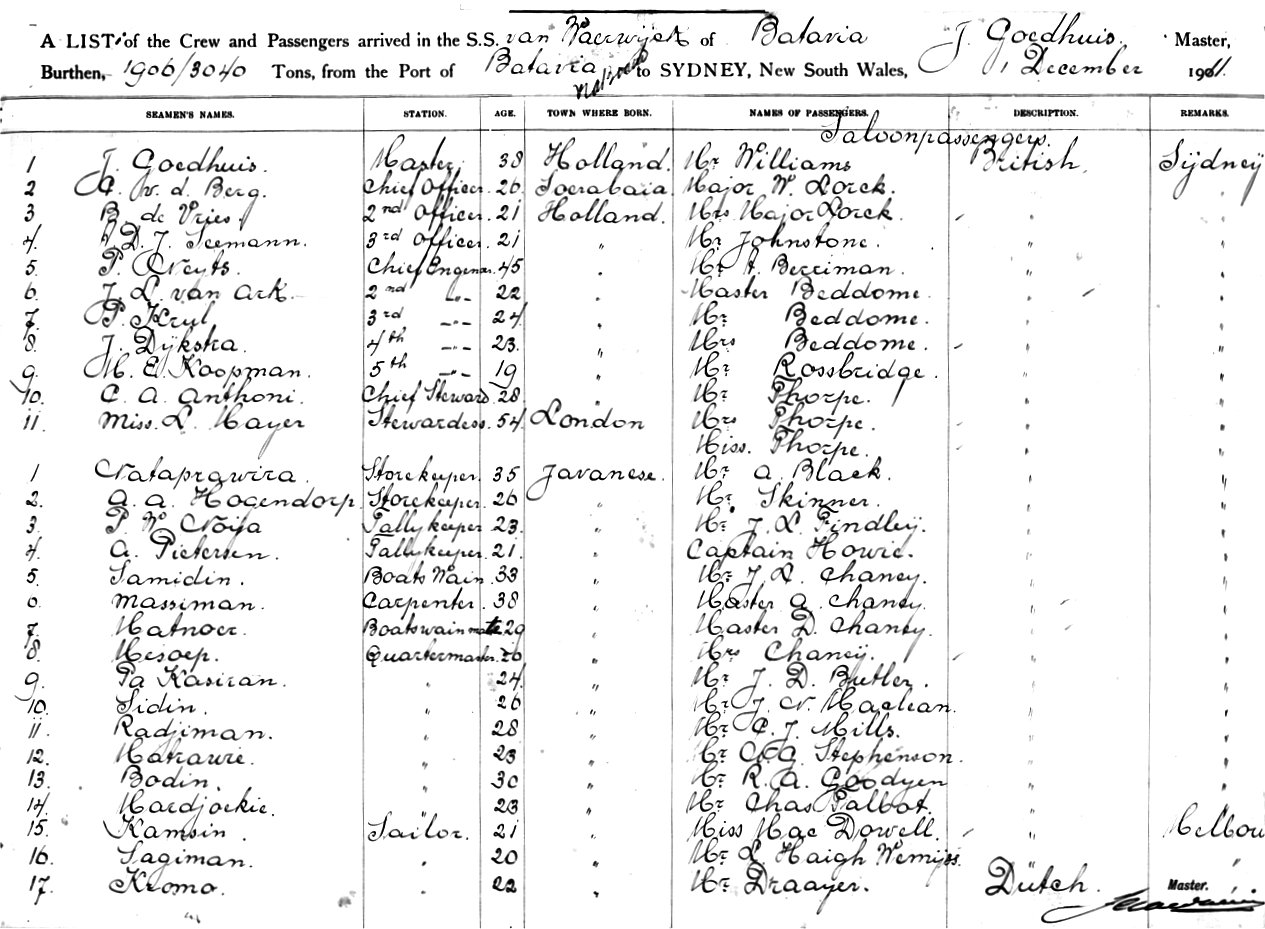 A LIST of the Crew and Passengers arrived in the S.S. van Waerwijck of Batavia J. Goedhuis. Master,
Burthen, 1906/3040 Tons, from the Port of Batavia to SYDNEY, New South Wales, 1 December 1911.
SEAMEN'S NAMES. STATION. AGE. TOWN WHERE BORN. NAMES OF PASSENGERS. DESCRIPTION. REMARKS.
Saloonpassengers.
1 J. Goedhuis. Master. 38 Holland. Mr Williams British. Sydney
2 v. d. Berg. Chief Officer. 26 Soerabaia Major W. Lorck. " "
3 B. de Vries. 2nd Officer. 21 Holland. Mrs Major Lorck. " "
4. D. J. Seemann. 3rd Officer. 21 " Mr Johnstone. " "
5. P. Neyts. Chief Engeneer. 45 " Mr A. Berriman. " "
6. J. L. van Ark. 2nd -"- 22 " Master Beddome. " "
7. P. Kryl 3rd -"- 24 " Mr Beddome. " "
8. J. Dijkstra. 4th -"- 23. " Mrs Beddome. " "
9. M. E. Koopman. 5th -"- 19 " Mr Rossbridge. " "
10. C. A. Anthoni. Chief Steward 28. " Mr Thorpe. " "
11 Miss. L. Mayer Stewardess. 54 London Mrs Thorpe. " "
Miss. Thorpe. " "
1 Nataprawira Storekeeper. 35 Javanese. Mr A. Black. " "
2. A. A. Hogendorp Storekeeper. 26 " Mr Skinner. " "
3. P. W. Noija Tallykeeper 23. " Mr J. L. Findley. " "
4. A. Pietersen. Tallykeeper. 21. " Captain Howie. " "
5. Samidin. BoatsWain. 33 " Mr J. L. Chaney. " "
6. Massiman. Carpenter. 38 " Master A. Chaney. " "
7. Matnoer. Boatswain mate 29 " Master D. Chaney. " "
8. Mesoep. Quartermaster. 26 " Mrs Chaney. " "
9. Pa Kasiran. " 24. " Mr J. D. Butler. " "
10. Sidin. " 26 " Mr J. N. Maclean. " "
11. Radjiman. " 28 " Mr C. J. Mills. " "
12. Matrawie. " 23 " Mr Stephenson. " "
13. Bodin. " 30 " Mr R. A. Goodyen " "
14. Mardjoekie. " 23 " Mr Chas Talbot. " "
15. Kamsin. Sailor. 21 " Miss Mac Dowell. " Melbou
16. Sagiman. " 20 " Mr L. Haigh Wemyss. " "
17. Kromo. " 22 " Mr Draayer. Dutch. "
Master.